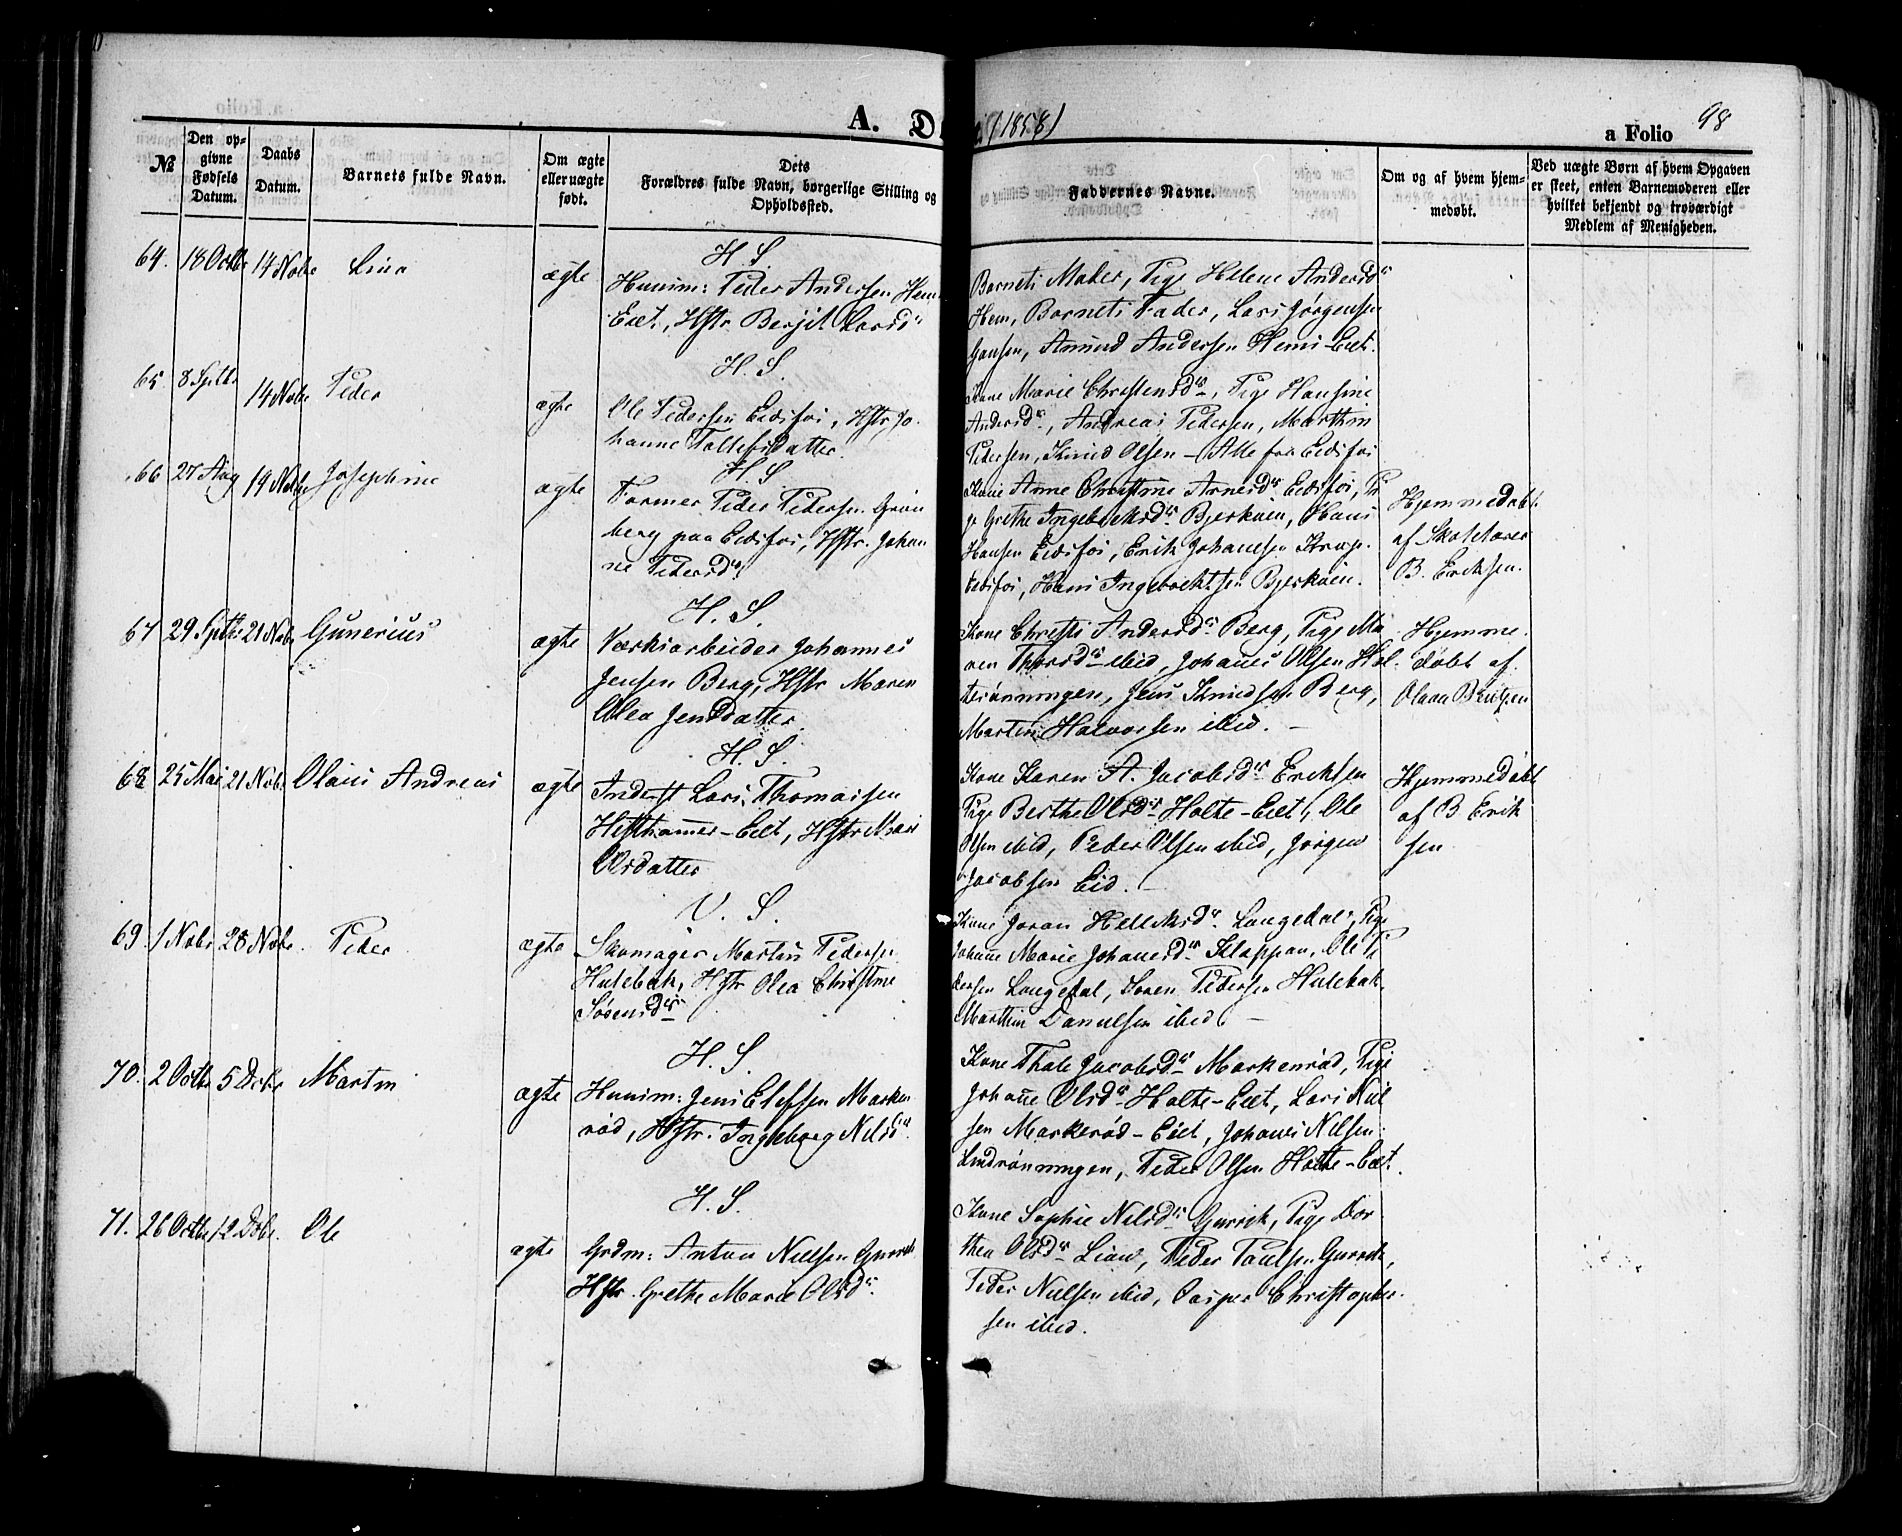 A. D
(1858)
a Folio 98
№
Den op-
givne
Fødsels
Datum.
Daabs
Datum.
Barnets fulde Navn.
Om ægte
eller uægte
født.
Dets
Forældres fulde Navn, borgerlige Stilling og
Opholdssted.
Faddernes Navne.
Om og af hvem hjem-
medøbt.
Ved uægte Børn af hvem Opgaven
er skeet, enten Barnemoderen eller
hvilket bekjendt og troværdigt
Medlem af Menigheden.
H. S.
64. 18 Octbr 14 Novbr Lina
ægte
Huusm: Peder Andersen Hem
Eiet, Hstr. Berjit Larsdr
Barnets Moder, Pige Helene Andersdr
Hem, Barnets Fader, Lars Jørgensen
Amund Andersen Hems-Eiet.
H. S.
65. 8 Septbr 14 Novbr Peder
ægte
Ole Pedersen Eidsfos, Hstr. Jo-
hanne Tollefsdatter.
Kone Marie Christensdr, Pige Hansine
Andersdr, Andreas Pedersen, Marthin
Pedersen, Knud Olsen - Alle fra Eidsfos
H. S.
66 27 Aug 19 Novbr Josephine
ægte
Former Peder Pedersen Grøn
berg paa Eidsfos, Hstr. Johan
ne Pedersdr.
Kone Anne Christine Arnesdr Eidsfos, Pi
ge Grethe Ingebrektsdr Bjerkøen, Hans
Hansen Eidsfos, Erik Johansen
Eidsfos, Hans Ingebrechtsen Bjerkøen.
Hjemmedøbt
af Skolelærer
B. Eriksen.
H. S.
67 29 Septbr 21 Novbr Gunerius
ægte
Værksarbeider Johannes
Jensen Berg, Hstr Maren
Olea Jensdatter
Kone Christi Andersdr Berg, Pige Ma
ren Thorsdr ibid, Johanes Olsen Hol-
terønningen, Jens Knudsen Berg,
Martin Halvorsen ibid. -
Hjemme
døbt af
Olava Bentzen
H. S.
68 25 Mai 21 Novbr Olaus Andreas
ægte
Inderst Lars Thomassen
Hesthammer-Eiet, Hstr Mari
Olsdatter
Kone Karen A. Jacobsdr Eriksen
Pige Berthe Olsdr Holte-Eiet, Ole
Olsen ibid, Peder Olsen ibid, Jørgen
Jacobsen Eid. -
Hjemmedøbt
af B. Erik
sen
V. S.
69. 1 Novbr 28 Novbr. Peder
ægte
Skomager Martin Pedersen
Hulebak, Hstr Olea Christine
Sørensdr
Kone Joran Langedal, Pige
Johanne Marie Johanesdr Kloppan, Ole Pe
dersen Langedal, Søren Pedersen Hulebak,
Marthin Danielsen ibid. -
H. S.
70. 2 Octbr 5 Decbr Martin
ægte
Huusm: Jens Elefsen Marken
rød, Hstr. Ingeborg Nilsdr.
Kone Thale Jacobsdr Markenrød, Pige
Johanne Olsdr Holte-Eiet, Lars Niel
sen Markerød-Eiet, Johanes Nilsen
Lindrønningen, Peder Olsen Holte-Eiet.
H. S.
71. 26 Octbr 12 Decbr. Ole
ægte
Grdm: Anton Nielsen Gurrik
Hstr. Grethe Marie Olsdr.
Kone Sophie Nilsdr Gurrik, Pige Dor
thea Olsdr Lian, Peder Paulsen Gurrik,
Peder Nielsen ibid, Casper Christopher-
sen ibid.